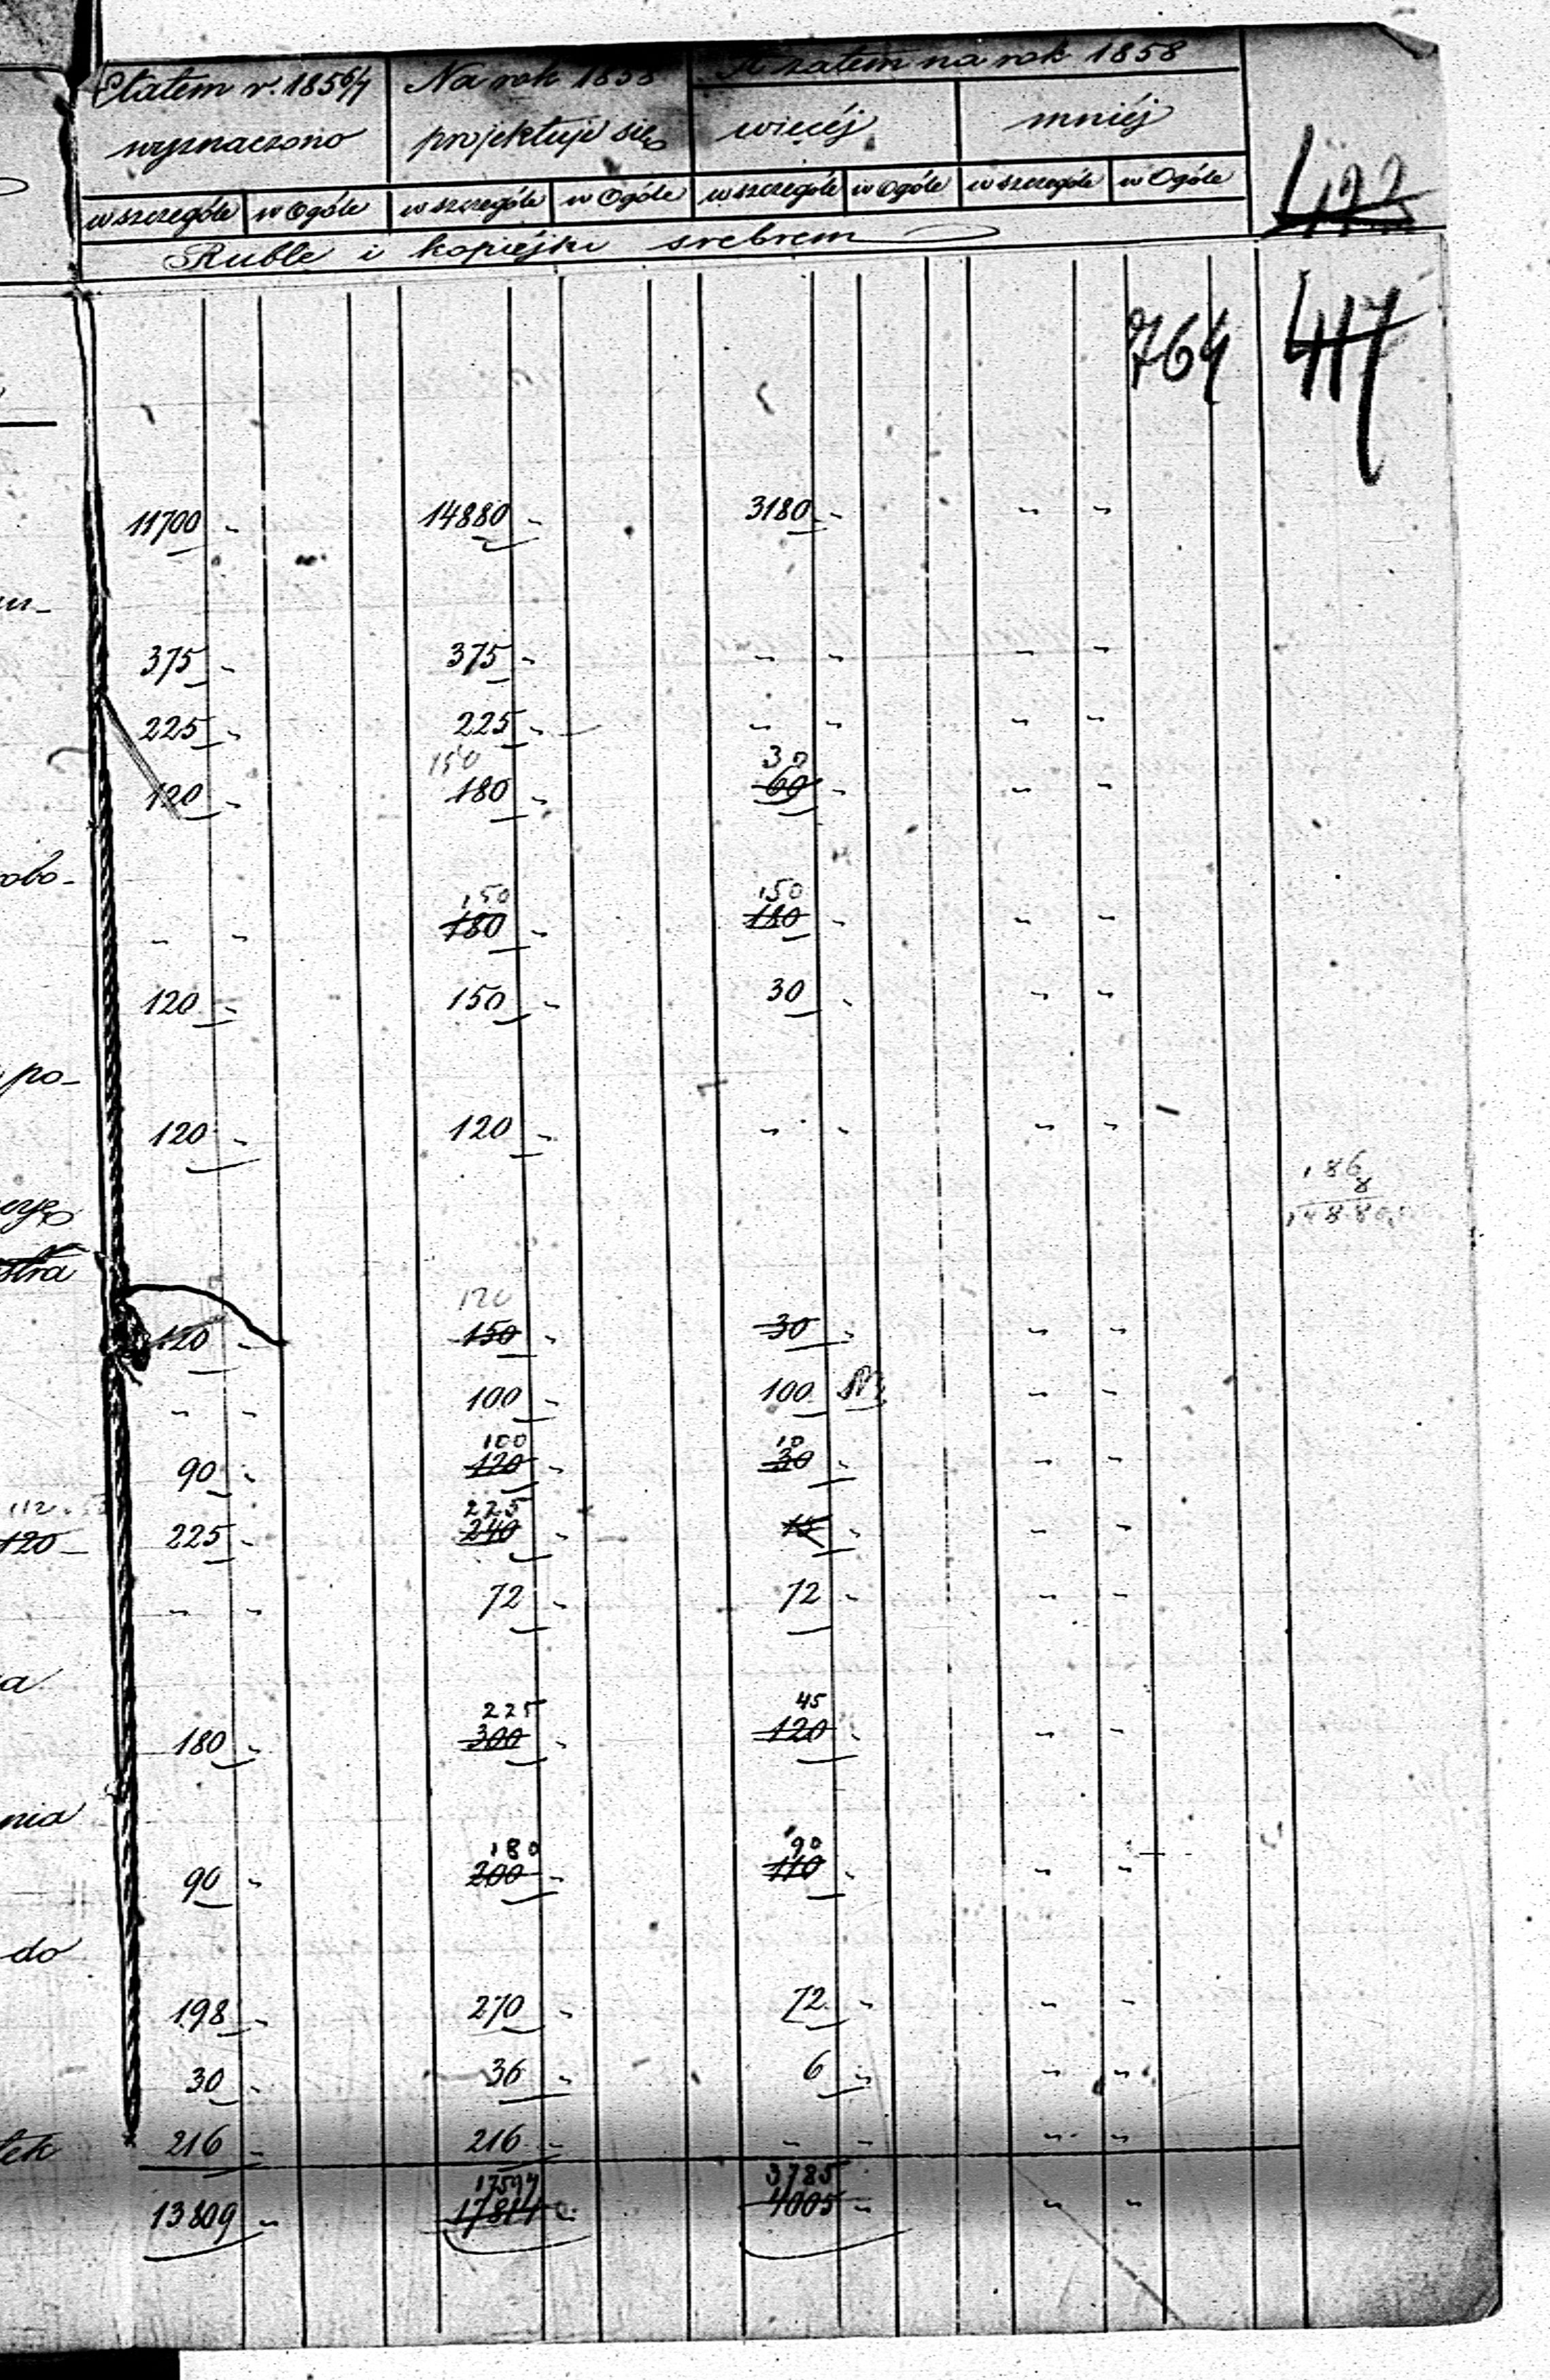 Etatem r. 1856/7 Na rok 1858 A zatem na rok 1858
wyznaczono projektuje się więcéj mniéj
w szczególe w Ogóle w szczególe w Ogóle w szczególe w Ogóle w szczególe w Ogóle
Ruble i kopiejki srebrem
422
764 417
11700 - 14880 - 3180 - - -
375 - 375 - - - - -
225 - 225 - - - - -
150 30
120 - 180 - 60 - - -
obo-
150 150
- - 180 - 180 - - -
120 - 150 - 30 - - -
po-
120 - 120 - - - - -
186
8
1488
stra
120
120 - 150 - 30 - - -
- - 100 - 100 - -
100 10
90 - 120 - 30 - - -
112 225
120 - 225 - 240 - 15 - - -
- - 72 - 72 - - -
225 45
180 - 300 - 120 - - -
nia
180 90
90 - 200 - 110 - - -
do
198 - 270 - 72 - - -
30 - 36 - 6 - - -
tek 216 - 216 - - - - -
17594 3785
13809 - 17814 - 4005 - - -